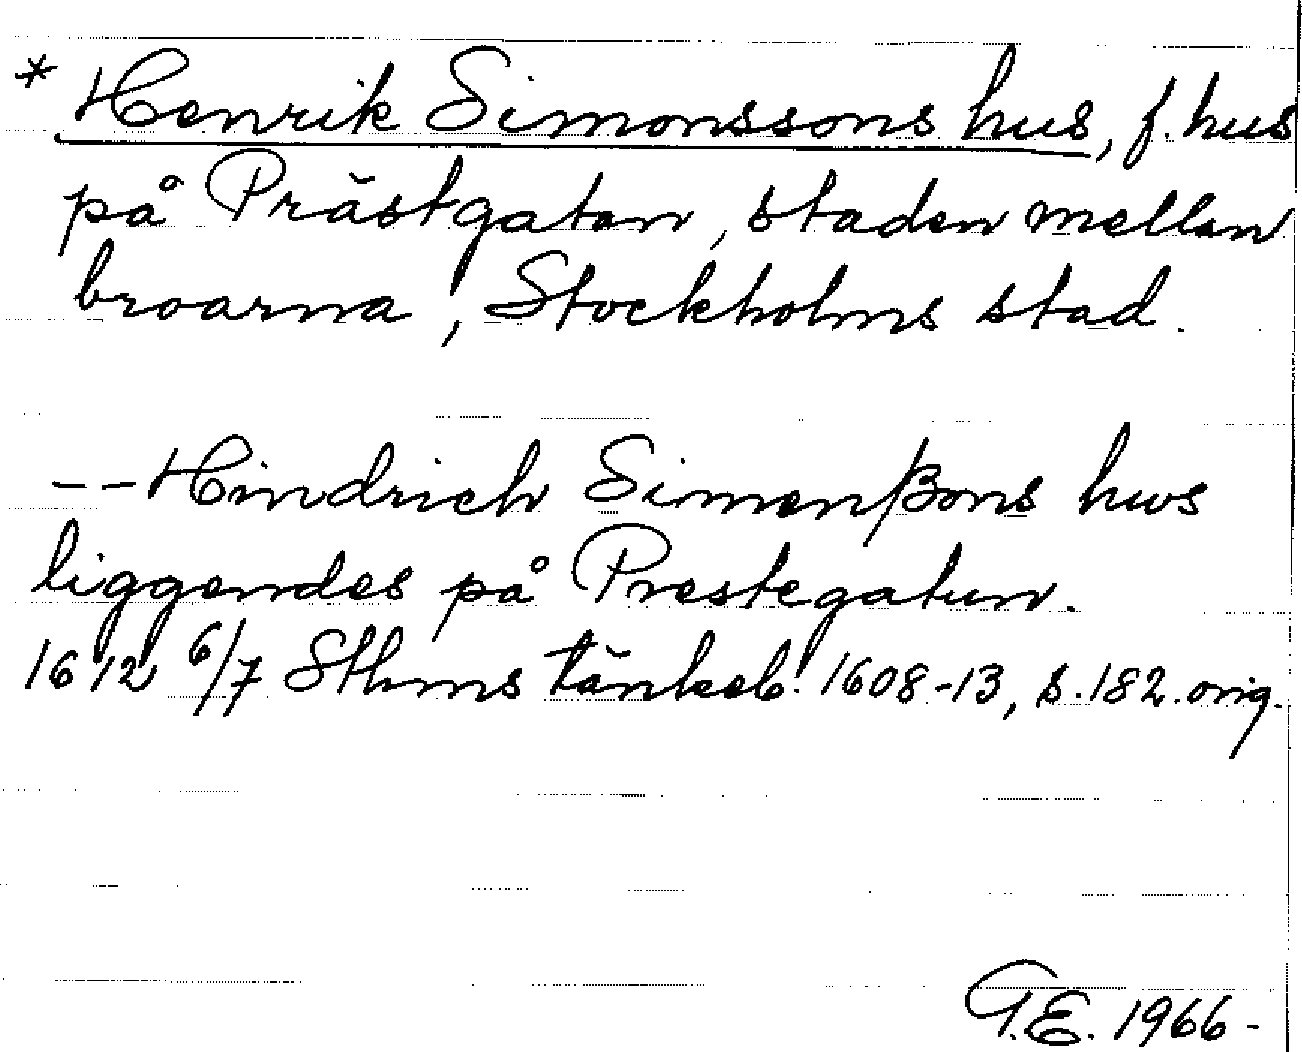 * Henrik Simonssons hus, f. hus
på Prästgatan, staden mellan
broarna, Stockholms stad.
--Hindrich Simenßons hws
liggendes på Prestegatun.
1612 6/7 Sthms tänkeb. 1608-13, s. 182. orig.
G.E. 1966-